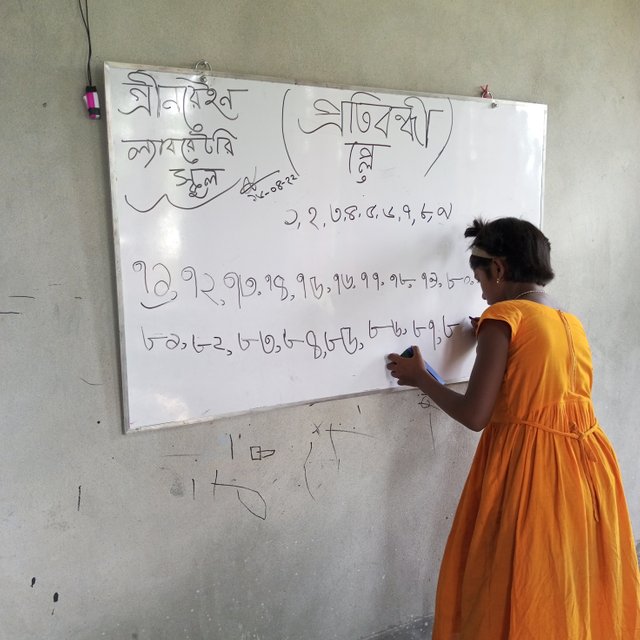 গ্রীনরেইন
ল্যাবরেটরি
স্কুল
(প্রতিবন্ধী)
২৬-০৪-২২
১, ২, ৩, ৪, ৫, ৬, ৭, ৮, ৯
৭১, ৭২, ৭৩, ৭৪, ৭৫, ৭৬, ৭৭, ৭৮, ৭৯, ৮০,
৮১, ৮২, ৮৩, ৮৪, ৮৫, ৮৬, ৮৭, ৮